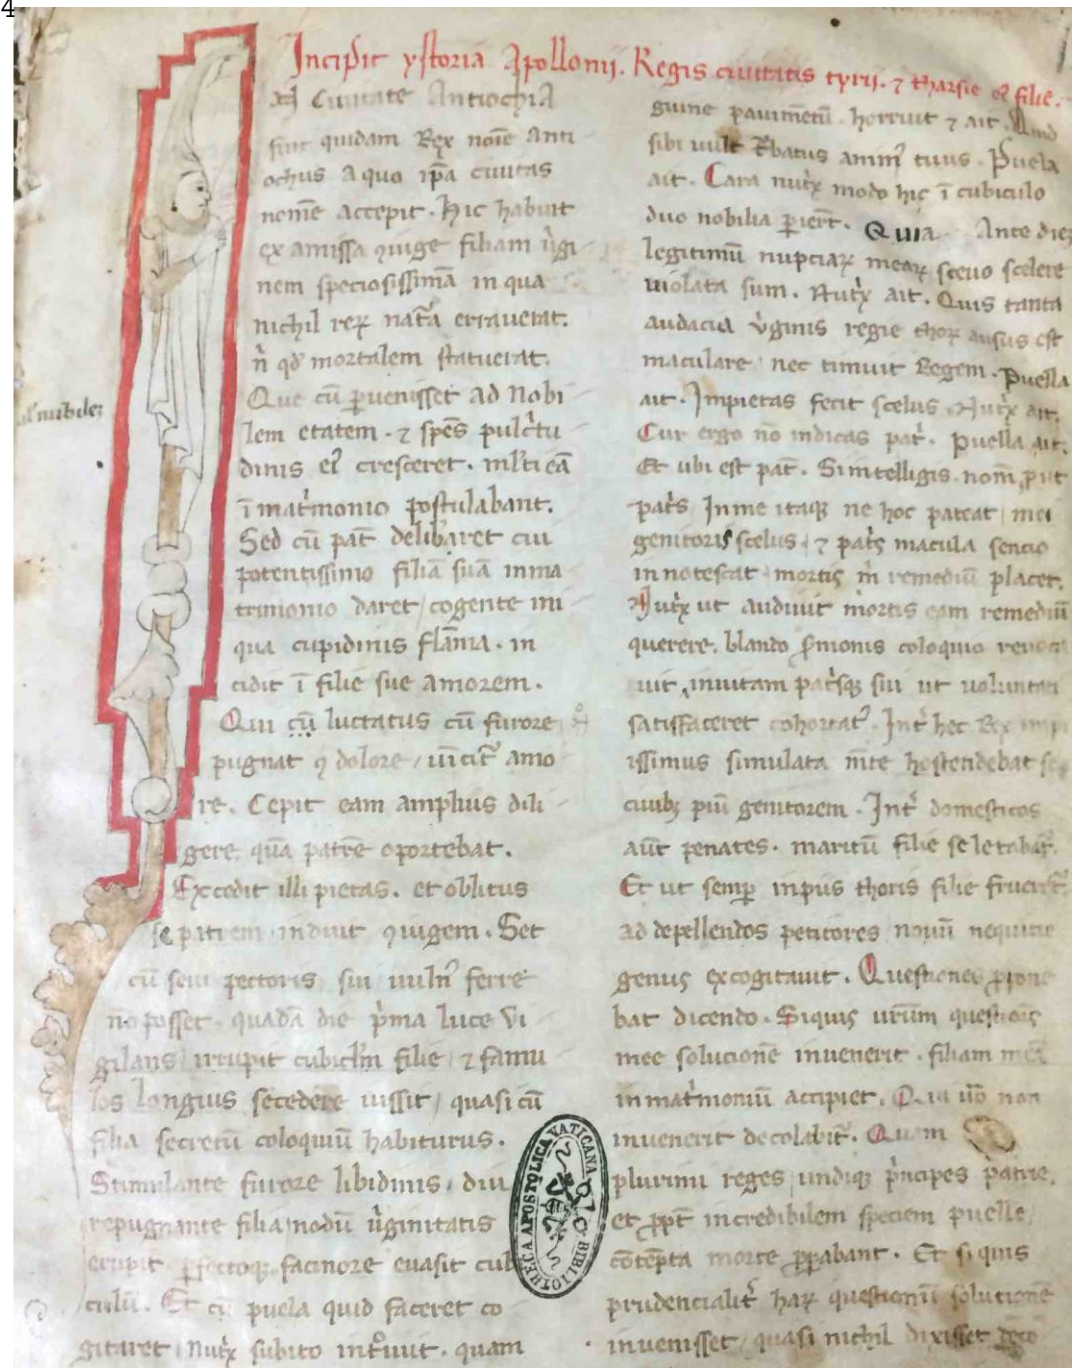 4
Incipit ystoria Apollonij. Regis ciuitatis tyrij. ⁊ tharsie ei᷒ filie.
Ciuitate Antiochia
fuit quidam Rex noīe Anti
ochus A quo ip̄a ciuitas
nomē accepit. Hic habuit
ex amissa ꝯiuge filiam ůgi
nem speciosissimā in qua
nichil reꝝ nat̄a errauerat.
n̄ qd̓ mortalem statuerat.
Que cū ꝑuenisset ad Nobi
lem etatem. ⁊ spēs pulc̓tu
dinis ei᷒ cresceret. ml̓ti eā
ī mat̓monio postulabant.
Sed cū pat̄ delib̓aret cui
potentissimo filiā suā in ma
trimonio daret / cogente ini
qua cupidinis flāma. in
cidit ī filie sue amorem.
Qui cū luctatus cū furore
pugnat ꝯ dolore / uīcit᷑ amo
re. Cepit eam amplius dili
gere, quā patrē oportebat.
Excedit illi pietas. et oblitus
se patrem induit ꝯiugem. Set
cū seui pectoris sui uuln᷒ ferre
nō posset. quadā die p̓ma luce Vi
gilans irrupit cubicl̄m filie / ⁊ famu
los longius secedere iussit / quasi cū
filia secretū coloquiū habiturus.
Stimulante furore libidinis, diu
repugnante filia nodū ůginitatis
erupit. ꝑfectoqꝫ facinore euasit cub
culū. Et cū puela quid faceret co
gitaret / Nut̓x subito int̊uit. quam
ul̓ nubilē
guine pauimētū. horruit ⁊ ait. Quid
sibi uult t̄batus anim᷒ tuus. Puela
ait. Cara nut̓x modo hic ī cubiculo
duo nobilia ꝑiert̄. Quia Ante diē
legitimū nupciaꝝ meaꝝ sceuo scelere
uiolata sum. Nut̓x ait. Quis tanta
audacia ůginis regie thoꝝ ausus est
maculare nec timuit Regem. Puella
ait. Impietas fecit scelus. Nut̓x ait.
Cur ergo nō indicas pat̓. Puella ait.
Et ubi est pat̄. Si intelligis. nom̄ ꝑiit
pat̓s In me itaqꝫ ne hoc pateat mei
genitoris scelus. ⁊ pat̓s macula sencio
innotescat mortis m̓ remediū placet.
Nut̓x ut audiuit mortis eam remediū
querere, blando s̓monis coloquio reuoca
uit, inuitam pat̓sqꝫ sui ut uoluntati
satisfaceret cohortat᷑. Int̓ hec Rex impi
issimus simulata m̄te hostendebat se
ciuibꝫ piū genitorem. Int̓ domesticos
aūt penates. maritū filie se letabat᷑.
Et ut semꝑ inpiis thoris filie frueret᷑.
ad depellendos petitores nouū nequitie
genus excogitauit. Questiones ꝓpone
bat dicendo. Siquis urūm questiōis
mee solucionē inuenerit. filiam meā
in mat̓moniū accipiet. Qui ůo non
inuenerit decolabit᷑. Quem
plurimi reges undiqꝫ p̓ncipes patrie,
et ꝓpt̓ incredibilem speciem puelle
cōtēpta morte ꝓꝑabant. Et si quis
prudencialit̓ haꝝ questionū solucionē
inuenisset, quasi nichil dixisset deco
BIBLIOTHECA APOSTOLICA VATICANA